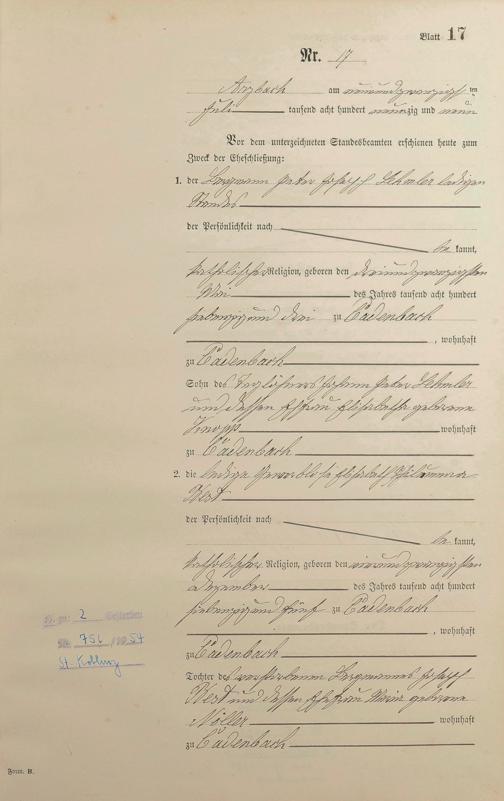 Blatt 17
Nr. 17
Arzbach am neunundzwanzigsten
Juli tausend acht hundert neunzig und neun
Vor dem unterzeichneten Standesbeamten erschienen heute zum
Zweck der Eheschließung:
1. der Bergmann Peter Joseph ledigen
Standes
der Persönlichkeit nach
be kannt,
katholischer Religion, geboren den dreiundzwanzigsten
Mai des Jahres tausend acht hundert
siebenzig und drei zu Cadenbach
, wohnhaft
zu Cadenbach
Sohn des Taglöhners Johann Peter
und dessen Ehefrau Elisabetha geborene
Knopp wohnhaft
zu Cadenbach
2. die ledige gewerblose Elisabeth Philomena
der Persönlichkeit nach
be kannt,
katholischer Religion, geboren den vierundzwanzigsten
Dezember des Jahres tausend acht hundert
siebenzig und fünf zu Cadenbach
, wohnhaft
zu Cadenbach
Tochter des verstorbenen Bergmannes Joseph
und dessen Ehefrau Maria geborene
Nöller wohnhaft
zu Cadenbach
2
Nr. 756 /1954
St. Koblenz
Form. B.